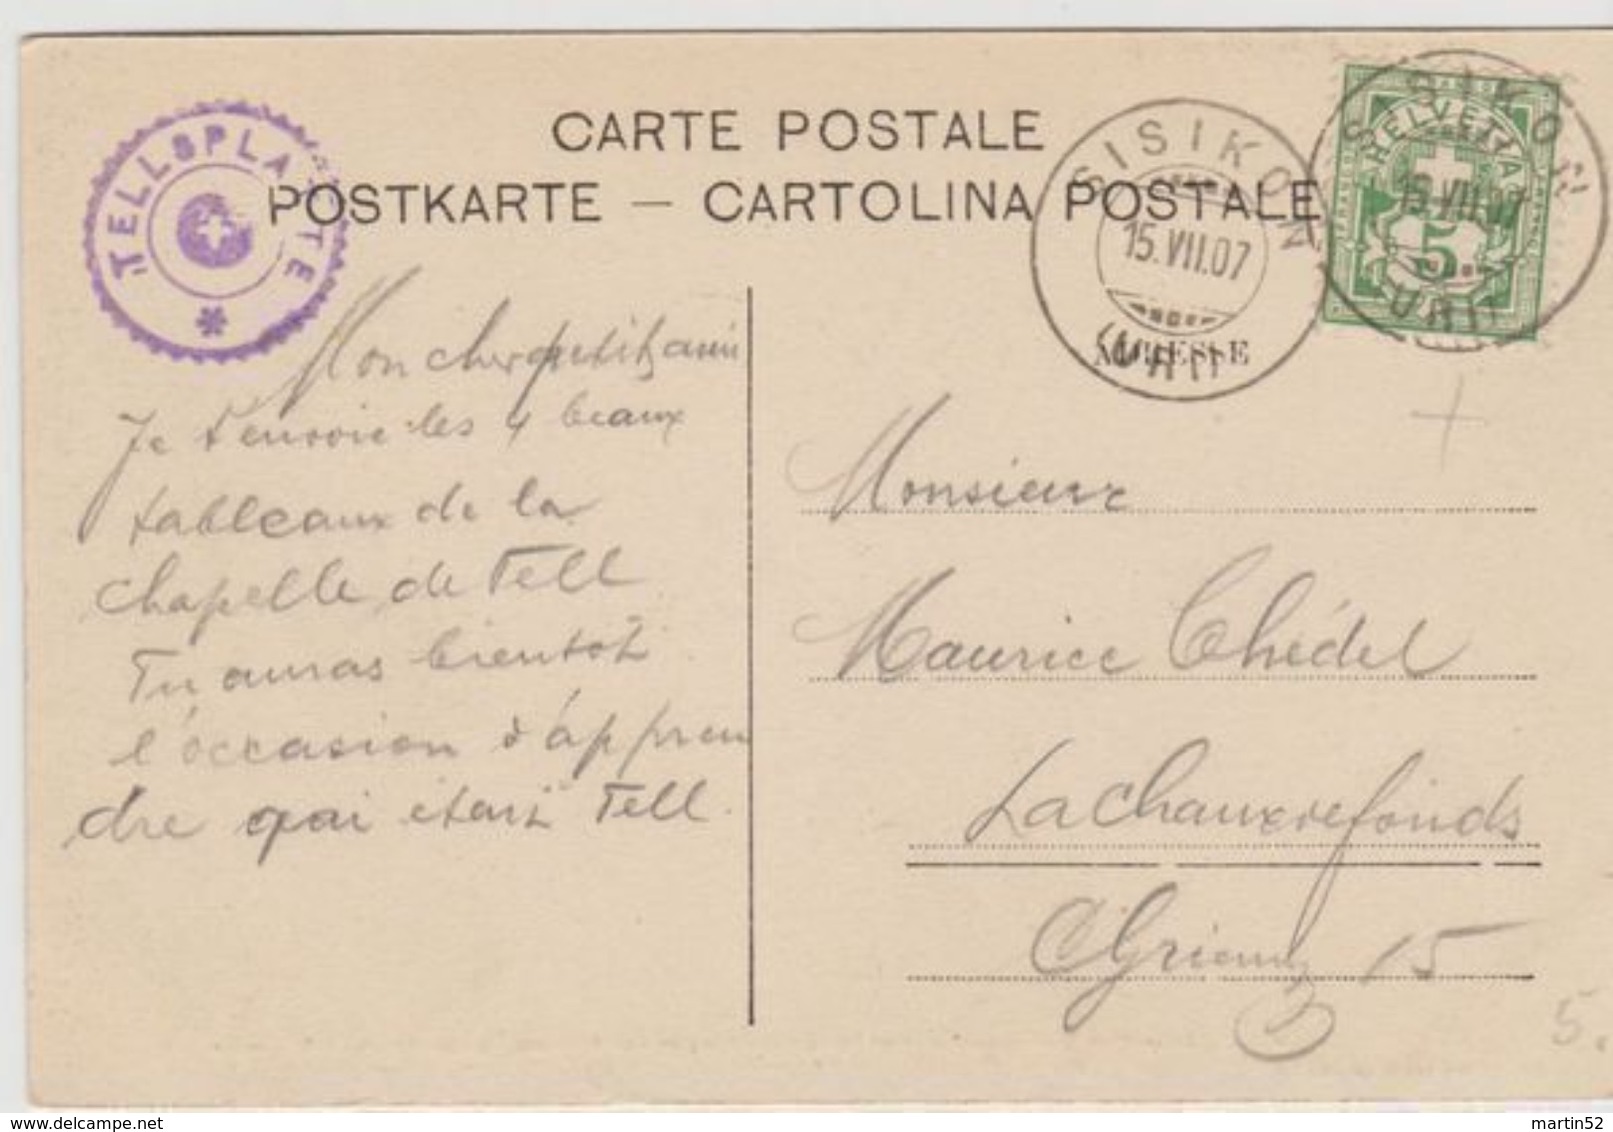 CARTE POSTALE
POSTKARTE — CARTOLINA POSTALE
TELLSPLATTE
SISIKON
15.VII.07
(URI)
SISIKON
15.VII.07
(URI)
HELVETIA
5
ADRESSE
Mon cher petit ami
Je t'envoie les 4 beaux
tableaux de la
chapelle de Tell
Tu auras bientôt
l'occasion d'appren
dre qui était Tell.
Monsieur
Maurice Chédel
La Chauxdefonds
15
5.
delcampe.net
martin52